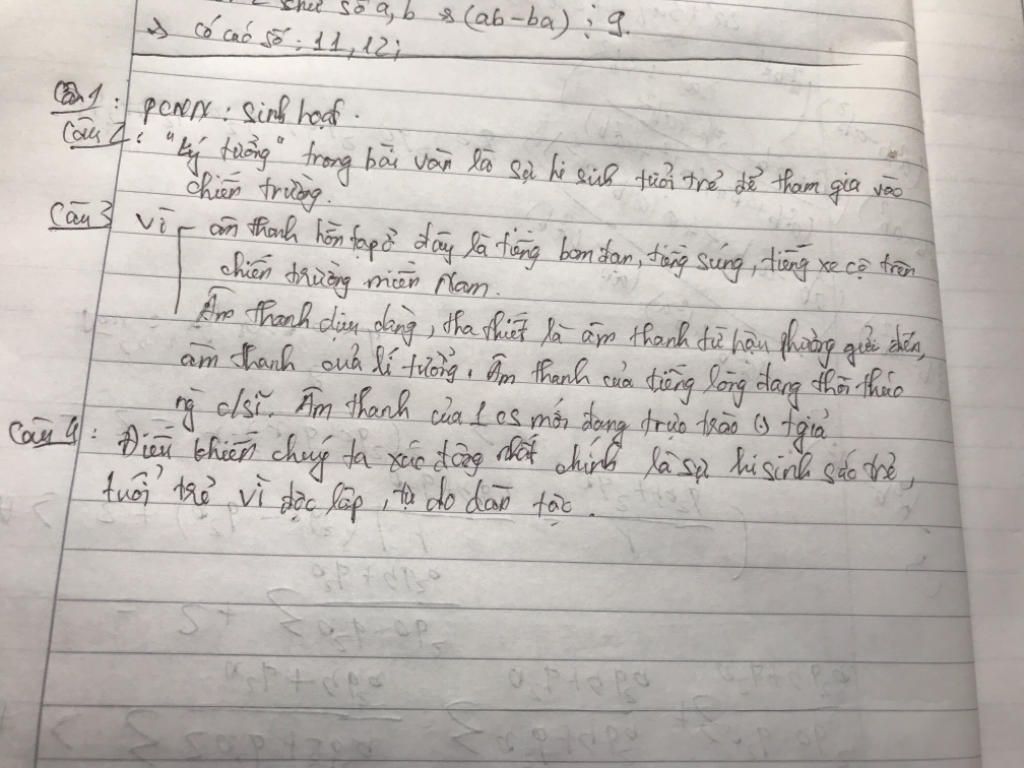 chữ số a, b => (ab-ba) ⋮ 9.
=> có các số: 11, 12;
Câu 1: PCNN: Sinh hoạt.
Câu 2: "Lý tưởng" trong bài văn là sự hi sinh tuổi trẻ để tham gia vào
chiến trường.
Câu 3 Vì âm thanh hỗn tạp ở đây là tiếng bom đạn, tiếng súng, tiếng xe cộ trên
chiến trường miền Nam.
Âm thanh dịu dàng, tha thiết là âm thanh từ hậu phương gửi đến,
âm thanh quả lí tưởng. Âm thanh của tiếng lòng đang thôi thúc
ng c/sĩ. Âm thanh của 1 cs mới đang trực trào (i) tgiả
Câu 4: Điều khiến chúng ta xúc động nhất chính là sự hi sinh sức trẻ,
tuổi trẻ vì độc lập, tự do dân tộc.